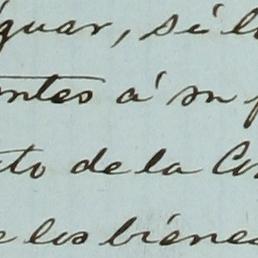 guar, si l
ntes á su p
to de la Co
e los biene